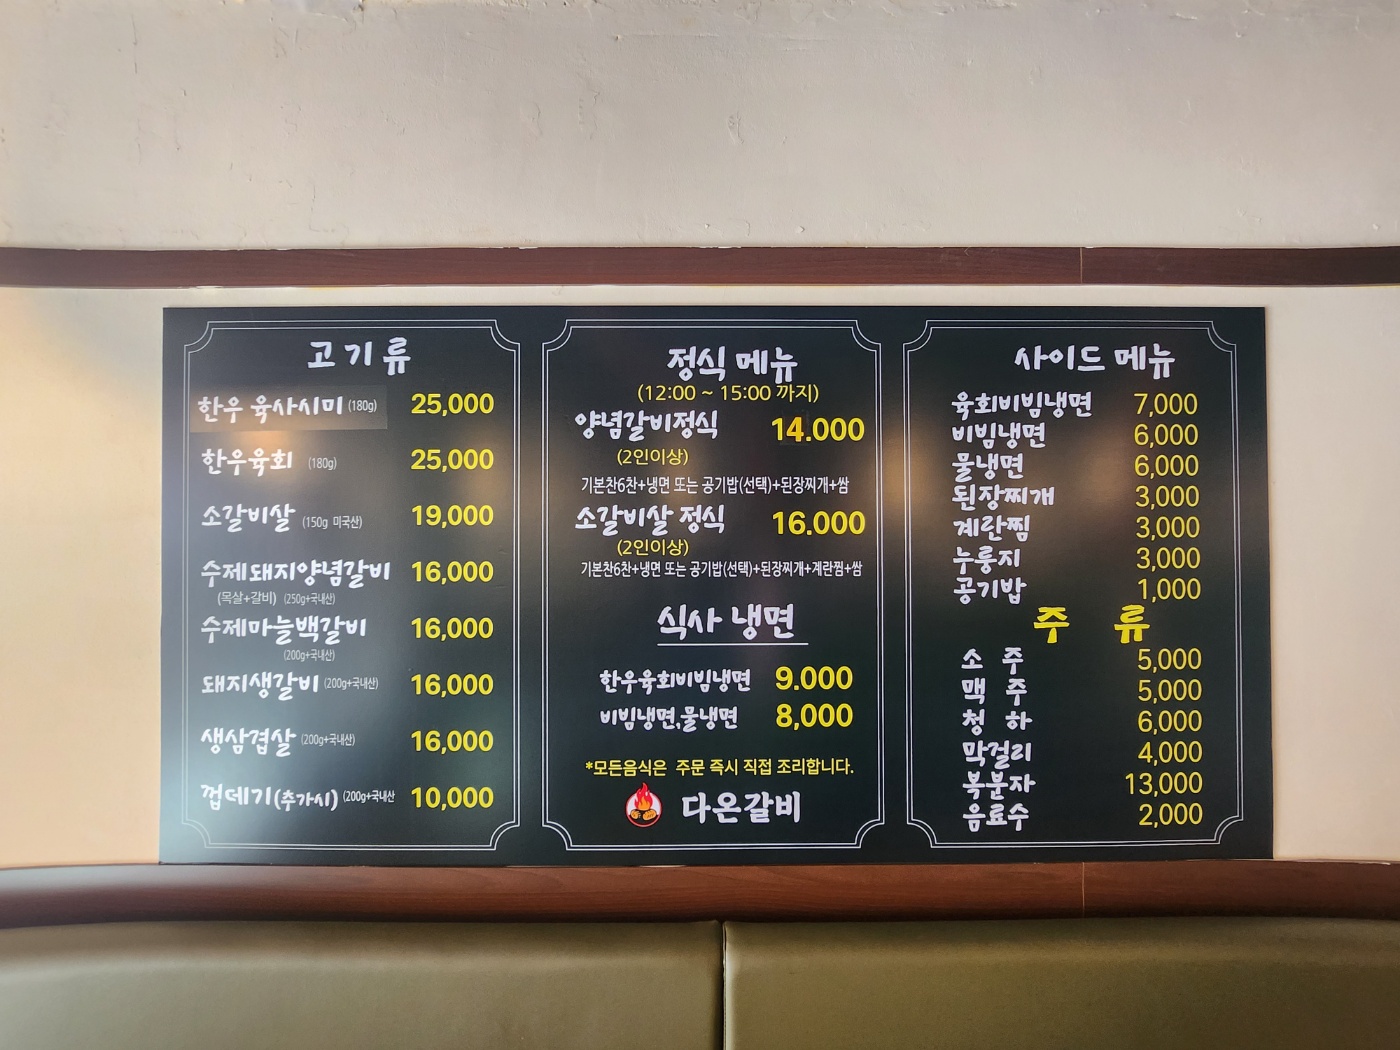 고기류
한우 육사시미 (180g) 25,000
한우육회 (180g) 25,000
소갈비살 (150g 미국산) 19,000
수제돼지양념갈비 16,000
(목살+갈비) (250g+국내산)
수제마늘백갈비 16,000
(200g+국내산)
돼지생갈비 (200g+국내산) 16,000
생삼겹살 (200g+국내산) 16,000
껍데기(추가시) (200g+국내산 10,000
정식 메뉴
(12:00 ~ 15:00 까지)
양념갈비정식 14.000
(2인이상)
기본찬6찬+냉면 또는 공기밥(선택)+된장찌개+쌈
소갈비살 정식 16.000
(2인이상)
기본찬6찬+냉면 또는 공기밥(선택)+된장찌개+계란찜+쌈
식사 냉면
한우육회비빔냉면 9.000
비빔냉면,물냉면 8,000
*모든음식은 주문 즉시 직접 조리합니다.
다온갈비
사이드 메뉴
육회비빔냉면 7,000
비빔냉면 6,000
물냉면 6,000
된장찌개 3,000
계란찜 3,000
누룽지 3,000
공기밥 1,000
주 류
소 주 5,000
맥 주 5,000
청 하 6,000
막걸리 4,000
복분자 13,000
음료수 2,000